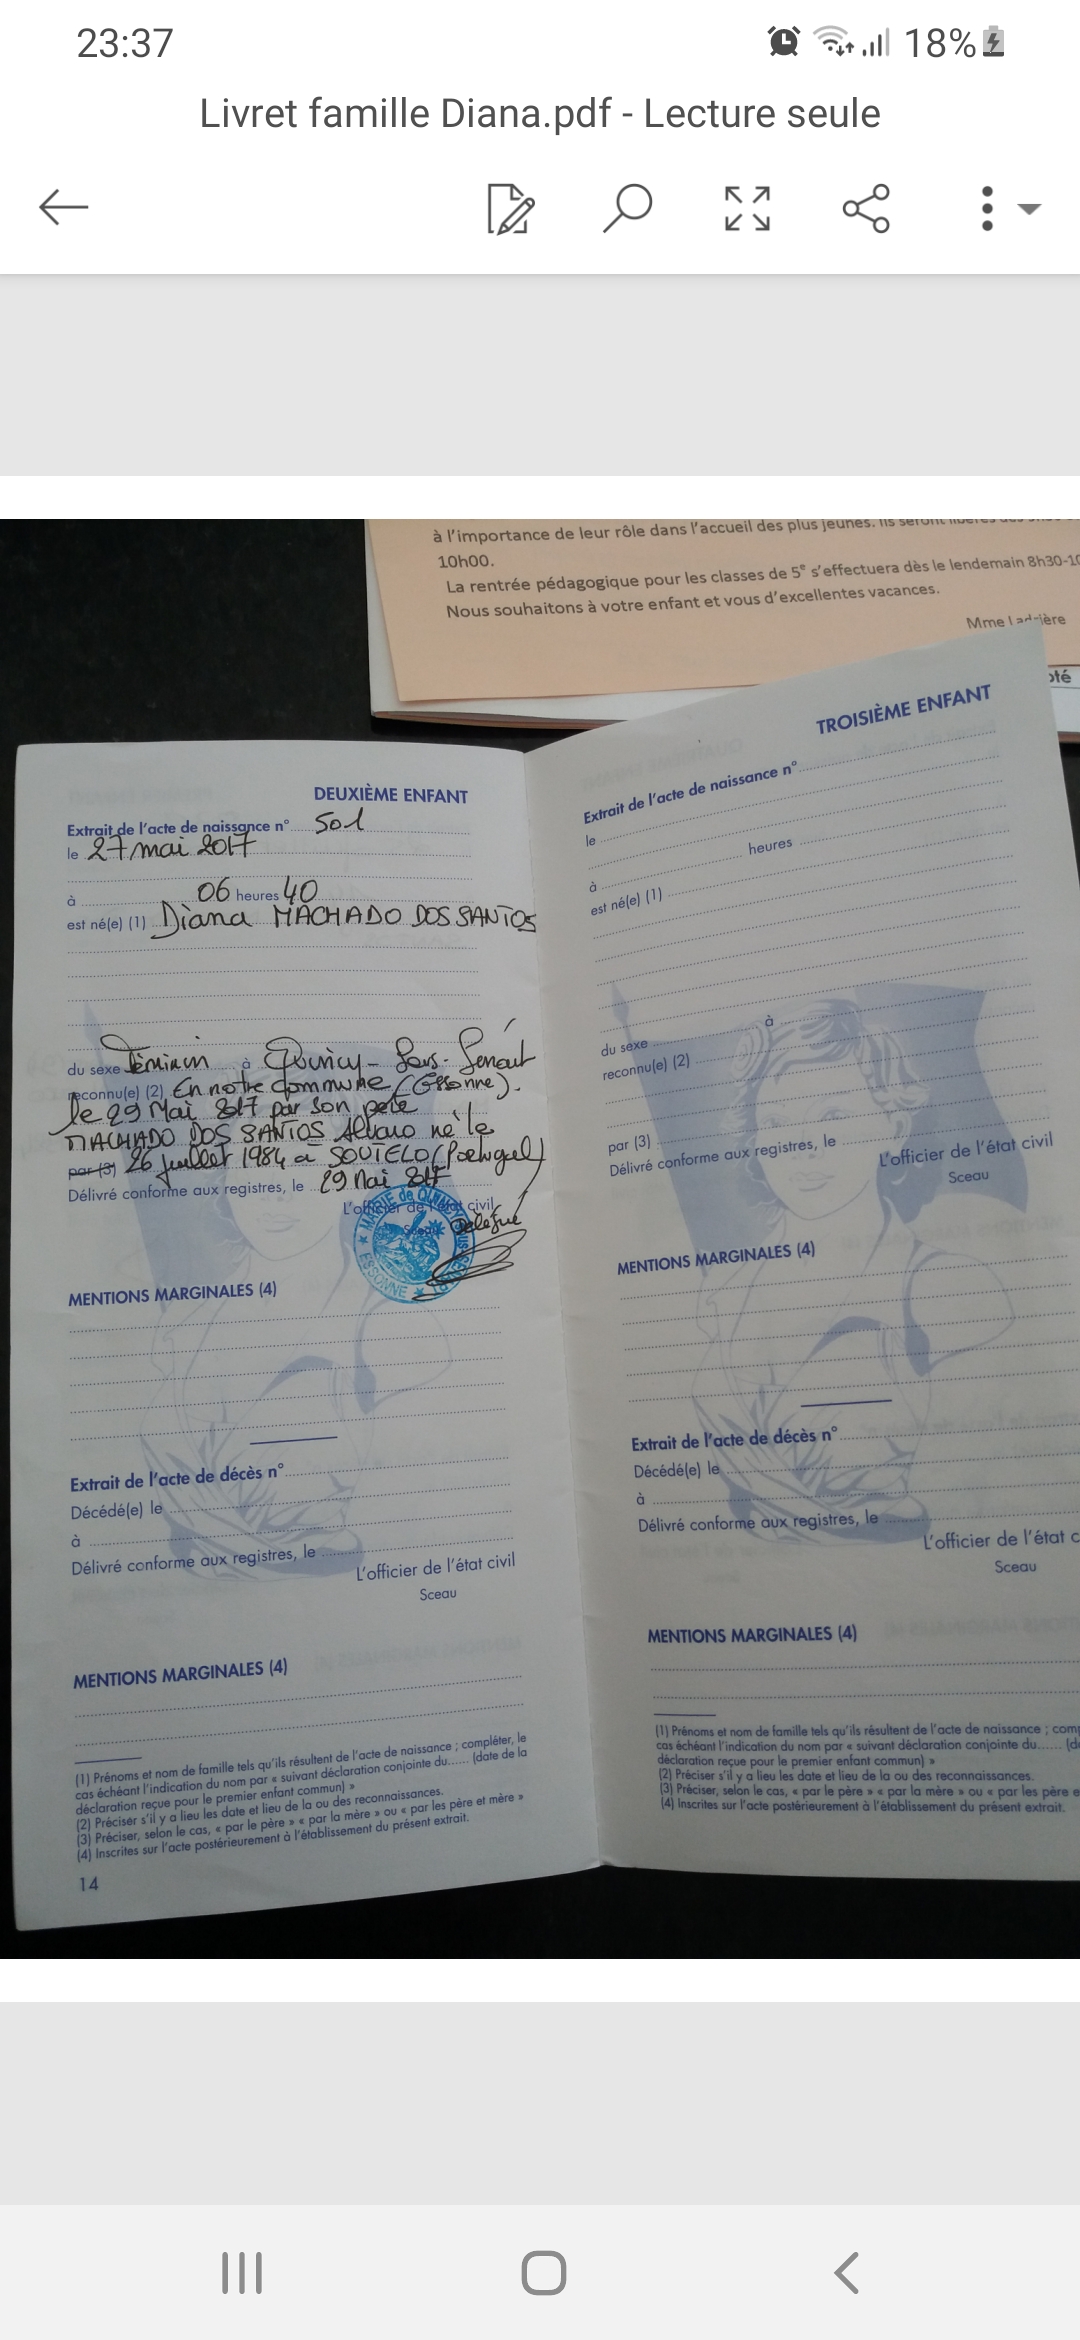 23:37
18%
Livret famille Diana.pdf - Lecture seule
à l'importance de leur rôle dans l'accueil des plus jeunes. Ils seront
10h00.
La rentrée pédagogique pour les classes de 5e s'effectuera dès le lendemain 8h30-10
Nous souhaitons à votre enfant et vous d'excellentes vacances.
Mme Ladrière
oté
DEUXIÈME ENFANT
Extrait de l'acte de naissance n° 501
le 27 mai 2017
à 06 heures 40
est né(e) (1) Diana MACHADO DOS SANTOS
du sexe Féminin à Quincy-Sous-Sénart
reconnu(e) (2) En notre Commune (Essonne).
le 29 Mai 2017 par son père
MACHADO DOS SANTOS Alvaro né le
par (3) 26 juillet 1984 à SOUTELO (Portugal)
Délivré conforme aux registres, le 29 Mai 2017
L'officier de l'état civil
Sceau
MAIRIE de QUINCY SOUS SENART
ESSONNE
MENTIONS MARGINALES (4)
Extrait de l'acte de décès n°
Décédé(e) le
à
Délivré conforme aux registres, le
L'officier de l'état civil
Sceau
MENTIONS MARGINALES (4)
(1) Prénoms et nom de famille tels qu'ils résultent de l'acte de naissance ; compléter, le
cas échéant l'indication du nom par « suivant déclaration conjointe du...... (date de la
déclaration reçue pour le premier enfant commun) »
(2) Préciser s'il y a lieu les date et lieu de la ou des reconnaissances.
(3) Préciser, selon le cas, « par le père » « par la mère » ou « par les père et mère »
(4) Inscrites sur l'acte postérieurement à l'établissement du présent extrait.
14
TROISIÈME ENFANT
Extrait de l'acte de naissance n°
le
à heures
est né(e) (1)
du sexe à
reconnu(e) (2)
par (3)
Délivré conforme aux registres, le
L'officier de l'état civil
Sceau
MENTIONS MARGINALES (4)
Extrait de l'acte de décès n°
Décédé(e) le
à
Délivré conforme aux registres, le
L'officier de l'état c
Sceau
MENTIONS MARGINALES (4)
(1) Prénoms et nom de famille tels qu'ils résultent de l'acte de naissance ; com
cas échéant l'indication du nom par « suivant déclaration conjointe du...... (d
déclaration reçue pour le premier enfant commun) »
(2) Préciser s'il y a lieu les date et lieu de la ou des reconnaissances.
(3) Préciser, selon le cas, « par le père » « par la mère » ou « par les père e
(4) Inscrites sur l'acte postérieurement à l'établissement du présent extrait.